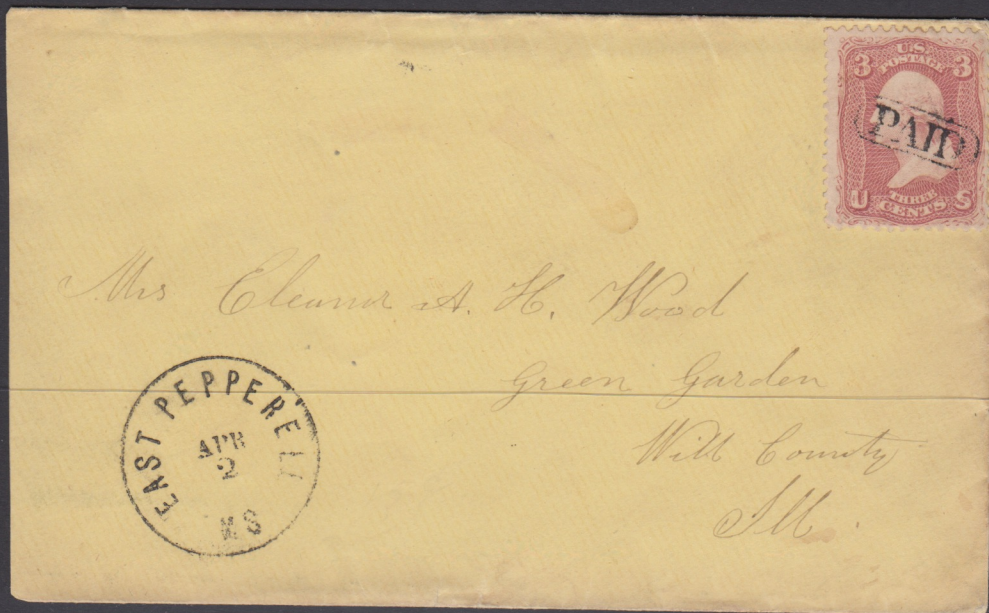 U.S.
POSTAGE
3 3
PAID
THREE
U CENTS S
Mrs Eleanor A. H. Wood
Green Garden
Will County
Ill.
EAST PEPPERELL
APR
2
MS